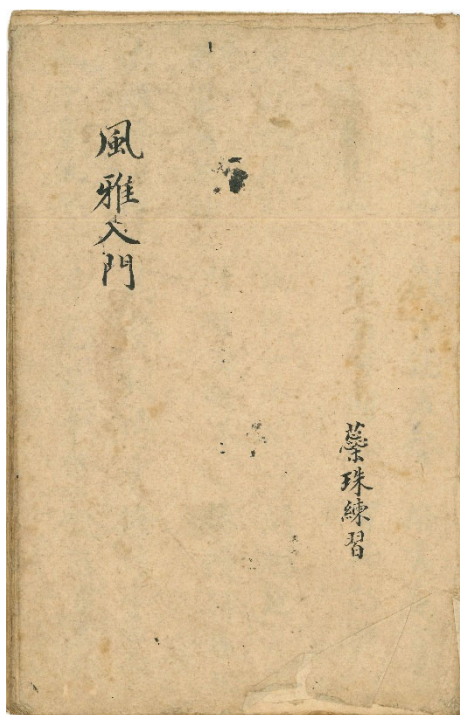 風雅入門
蘂珠練習